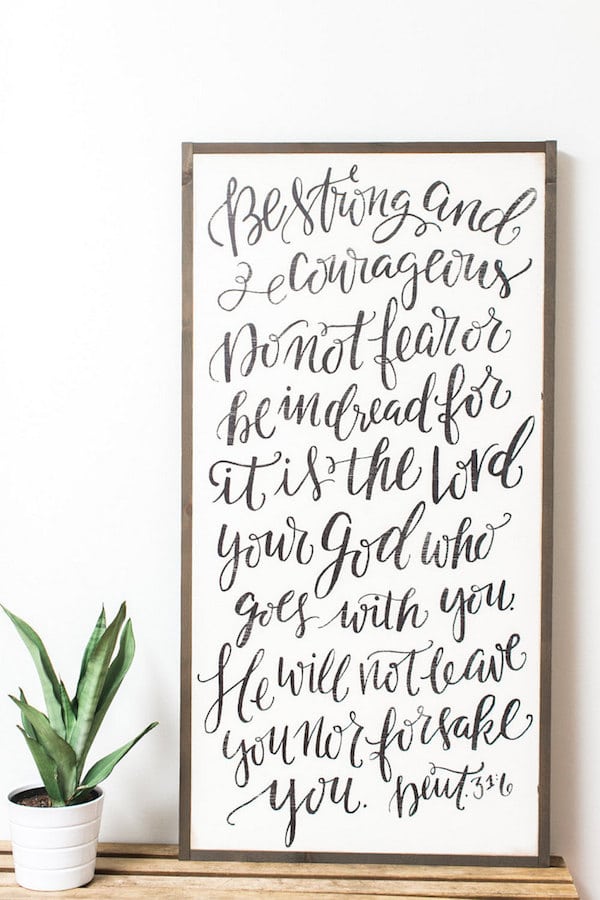 Be strong and
courageous
Do not fear or
be in dread for
it is the Lord
your God who
goes with you.
He will not leave
you nor forsake
you. Deut. 31:6